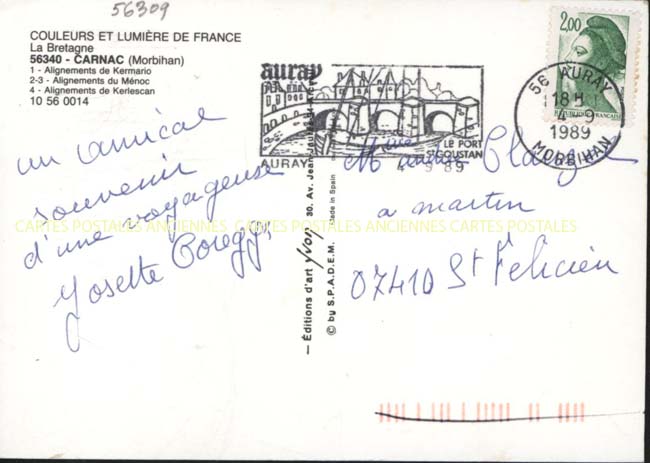 56309
COULEURS ET LUMIÈRE DE FRANCE
La Bretagne
56340 - CARNAC (Morbihan)
1 - Alignements de Kermario
2-3 - Alignements du Ménoc
4 - Alignements de Kerlescan
10 56 0014
un amical
souvenir
d'une voyageuse
Josette
— Éditions d'art yvon, 30, Av. Jean
© by S.P.A.D.E.M. Made in Spain
auray
AURAY
LE PORT
ST GOUSTAN
4 - 9 89
2,00
56 AURAY
18 H
4 - 9
1989
MORBIHAN
a martin
07410 St Félicien
CARTES POSTALES ANCIENNES CARTES POSTALES ANCIENNES CARTES POSTALES ANCIENNES